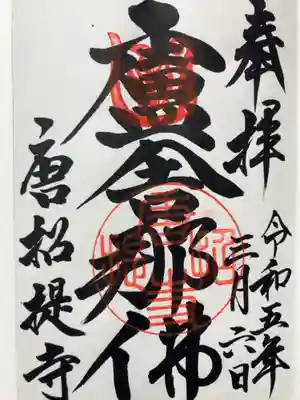 奉拝
令和五年
三月六日
盧舎那佛
唐招提寺